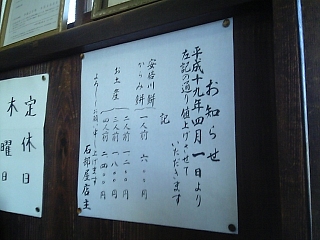 お知らせ
平成十九年四月一日より
左記の通り値上げさせて
いただきます
記
安倍川餅
からみ餅
一人前 六〇〇円
お土産
二人前 一二〇〇円
三人前 一八〇〇円
四人前 二四〇〇円
よろしくお願い申し上げます
石部屋店主
定休日
木曜日